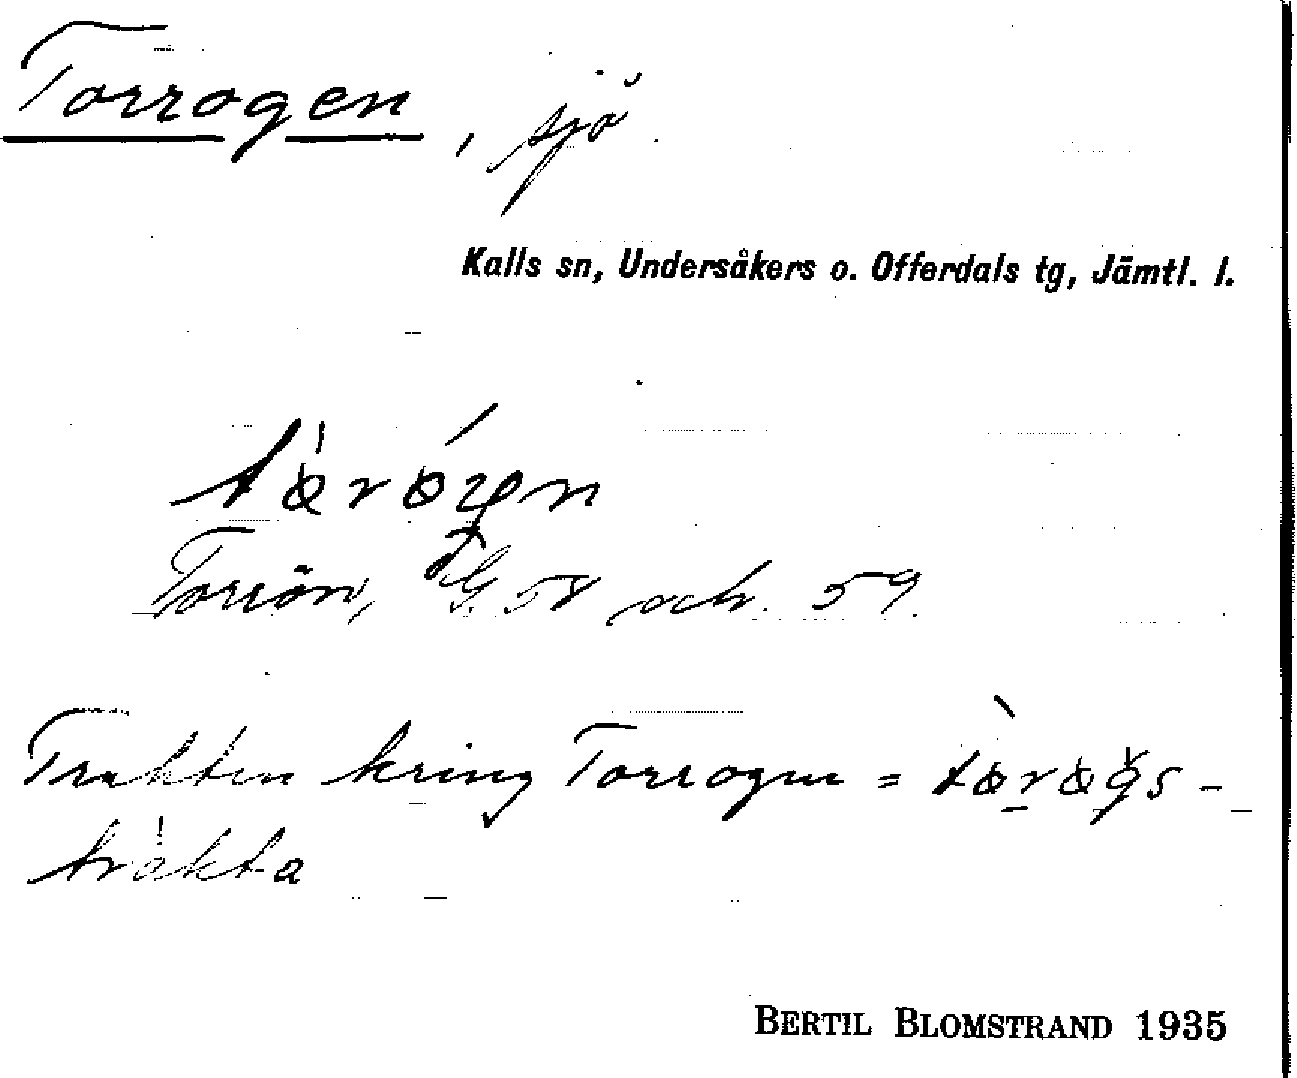 Torrogen, sjö.
Kalls sn, Undersåkers o. Offerdals tg, Jämtl. l.
Torrön, G. 58 och 59.
Trakten kring Torrogen =
tràkta
BERTIL BLOMSTRAND 1935